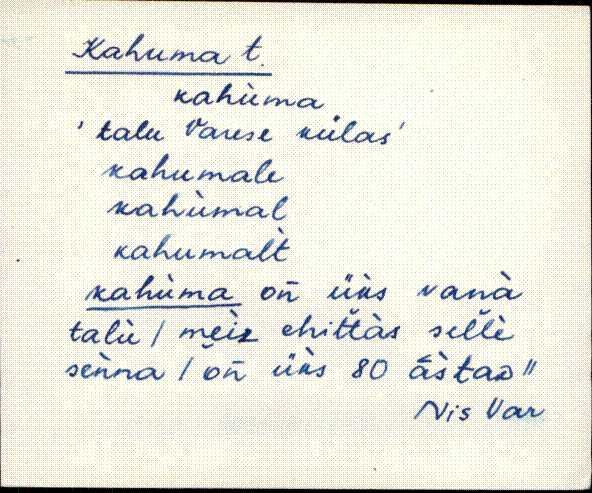 Kahuma t.
kahùma
' talu Varese külas'
kahumale
kahùmal
kahumalt̀
kahùma on̄ üks vanà
talù / meìz ehit̆t̆às sel̆l̆è
sènna / on̄ üks 80 āstaɒ "
Nis Var